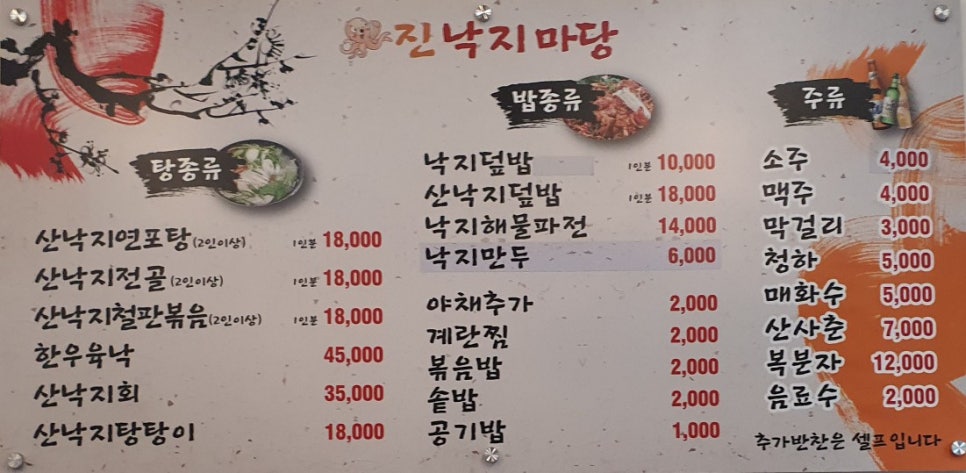 진낙지마당
탕종류
산낙지연포탕(2인이상) 1인분 18,000
산낙지전골(2인이상) 1인분 18,000
산낙지철판볶음(2인이상) 1인분 18,000
한우육낙 45,000
산낙지회 35,000
산낙지탕탕이 18,000
밥종류
낙지덮밥 1인분 10,000
산낙지덮밥 1인분 18,000
낙지해물파전 14,000
낙지만두 6,000
야채추가 2,000
계란찜 2,000
볶음밥 2,000
솥밥 2,000
공기밥 1,000
주류
소주 4,000
맥주 4,000
막걸리 3,000
청하 5,000
매화수 5,000
산사춘 7,000
복분자 12,000
음료수 2,000
추가반찬은 셀프입니다